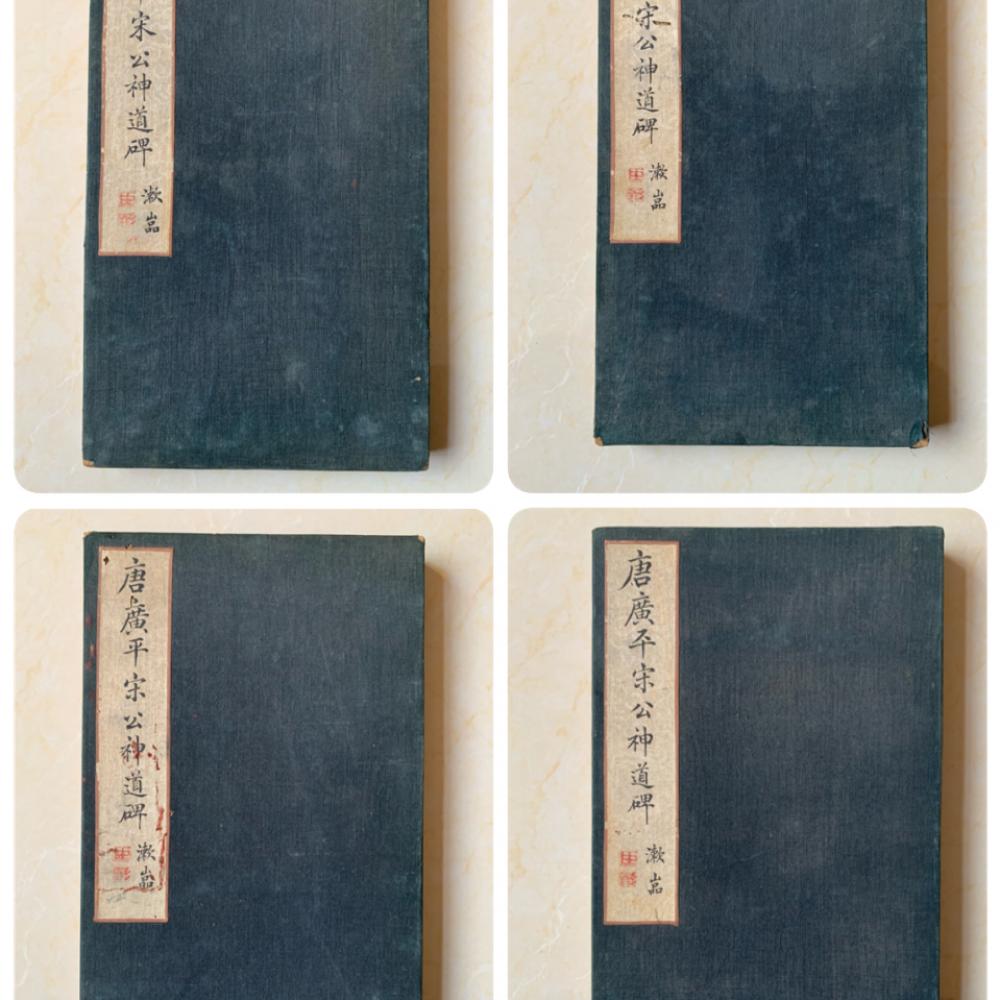 宋公神道碑
漱嵓
宋公神道碑
漱嵓
唐廣平宋公神道碑
漱嵓
唐廣平宋公神道碑
漱嵓